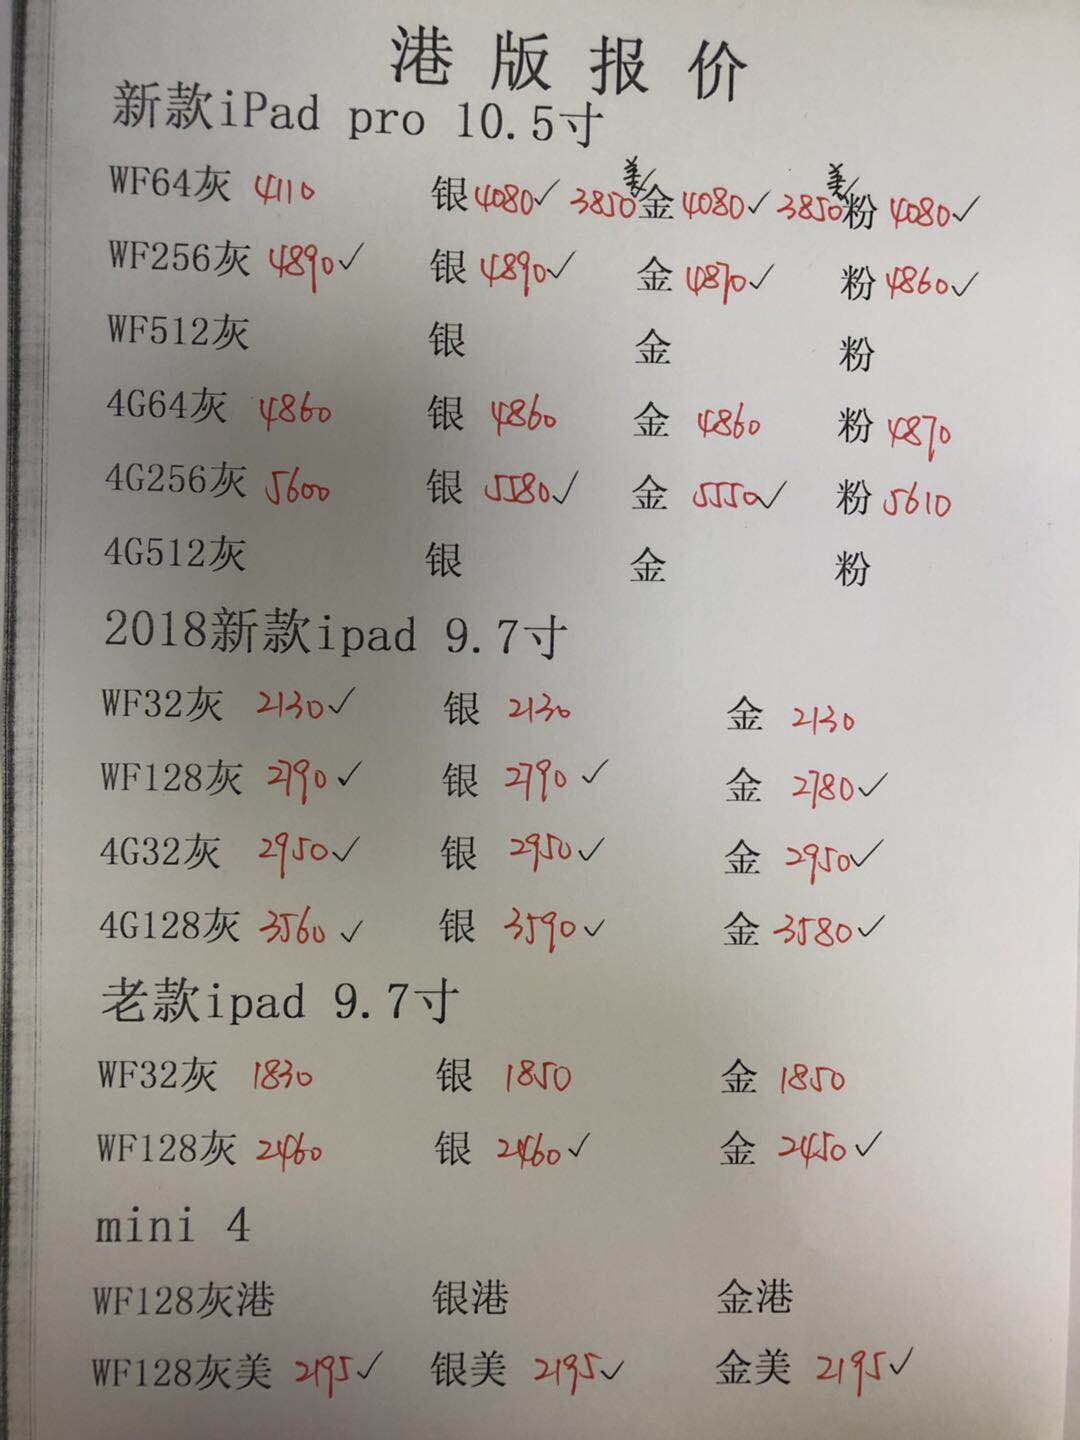 港版报价
新款iPad pro 10.5寸
WF64灰 4110 银4080✓ 3850美✓金4080✓ 3850美✓粉4080✓
WF256灰 4890✓ 银4890✓ 金4870✓ 粉4860✓
WF512灰 银 金 粉
4G64灰 4860 银 4860 金 4860 粉4870
4G256灰 5600 银 5580✓ 金 5550✓ 粉5610
4G512灰 银 金 粉
2018新款ipad 9.7寸
WF32灰 2130✓ 银 2130 金 2130
WF128灰 2790✓ 银 2790✓ 金 2780✓
4G32灰 2950✓ 银 2950✓ 金 2950✓
4G128灰 3560✓ 银 3590✓ 金3580✓
老款ipad 9.7寸
WF32灰 1830 银 1850 金 1850
WF128灰 2460 银 2460✓ 金 2450✓
mini 4
WF128灰港 银港 金港
WF128灰美 2195✓ 银美 2195✓ 金美 2195✓